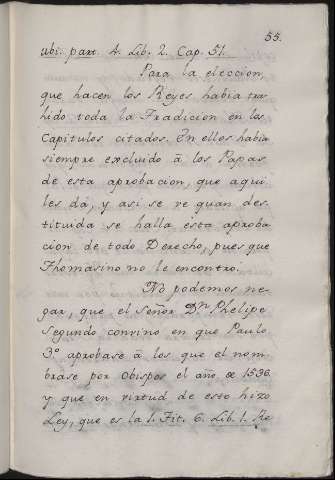 55.
ubi. part. 4. Lib. 2. Cap. 51.
Para la eleccion,
que hacen los Reyes habia tra
hido toda la Tradicion en los
Capitulos citados. En ellos habia
siempre excluido â los Papas
de esta aprobacion, que aqui
les dá, y asi se ve quan des
tituida se halla esta aproba
cion de todo Derecho, pues que
Thomasino no le encontro.
No podemos ne
gar, que el Señor Dn. Phelipe
Segundo convino en que Paulo
3º. aprobase â los que el nom
brase por Obispos el año de 1536
y que en virtud de esto hizo
Ley, que es la 1. Tit. 6. Lib. 1. Re